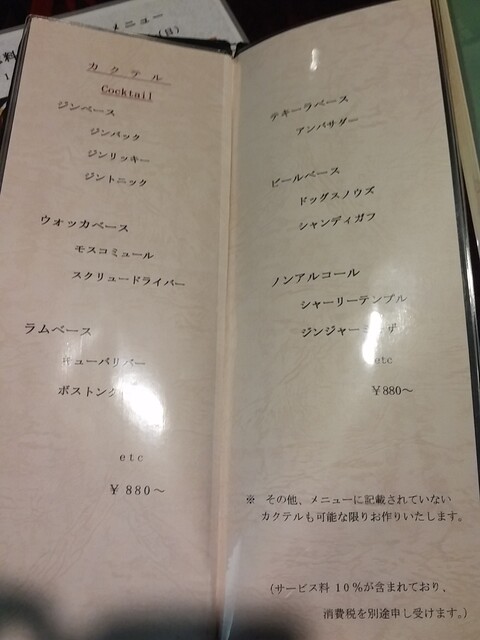 メニュー
カクテル
Cocktail
ジンベース
ジンバック
ジンリッキー
ジントニック
ウォッカベース
モスコミュール
スクリュードライバー
ラムベース
キューバリバー
ボストン
etc
¥880~
テキーラベース
アンバサダー
ビールベース
ドッグスノウズ
シャンディガフ
ノンアルコール
シャーリーテンプル
ジンジャー
etc
¥880~
※ その他、メニューに記載されていない
カクテルも可能な限りお作りいたします。
(サービス料 10%が含まれており、
消費税を別途申し受けます。)